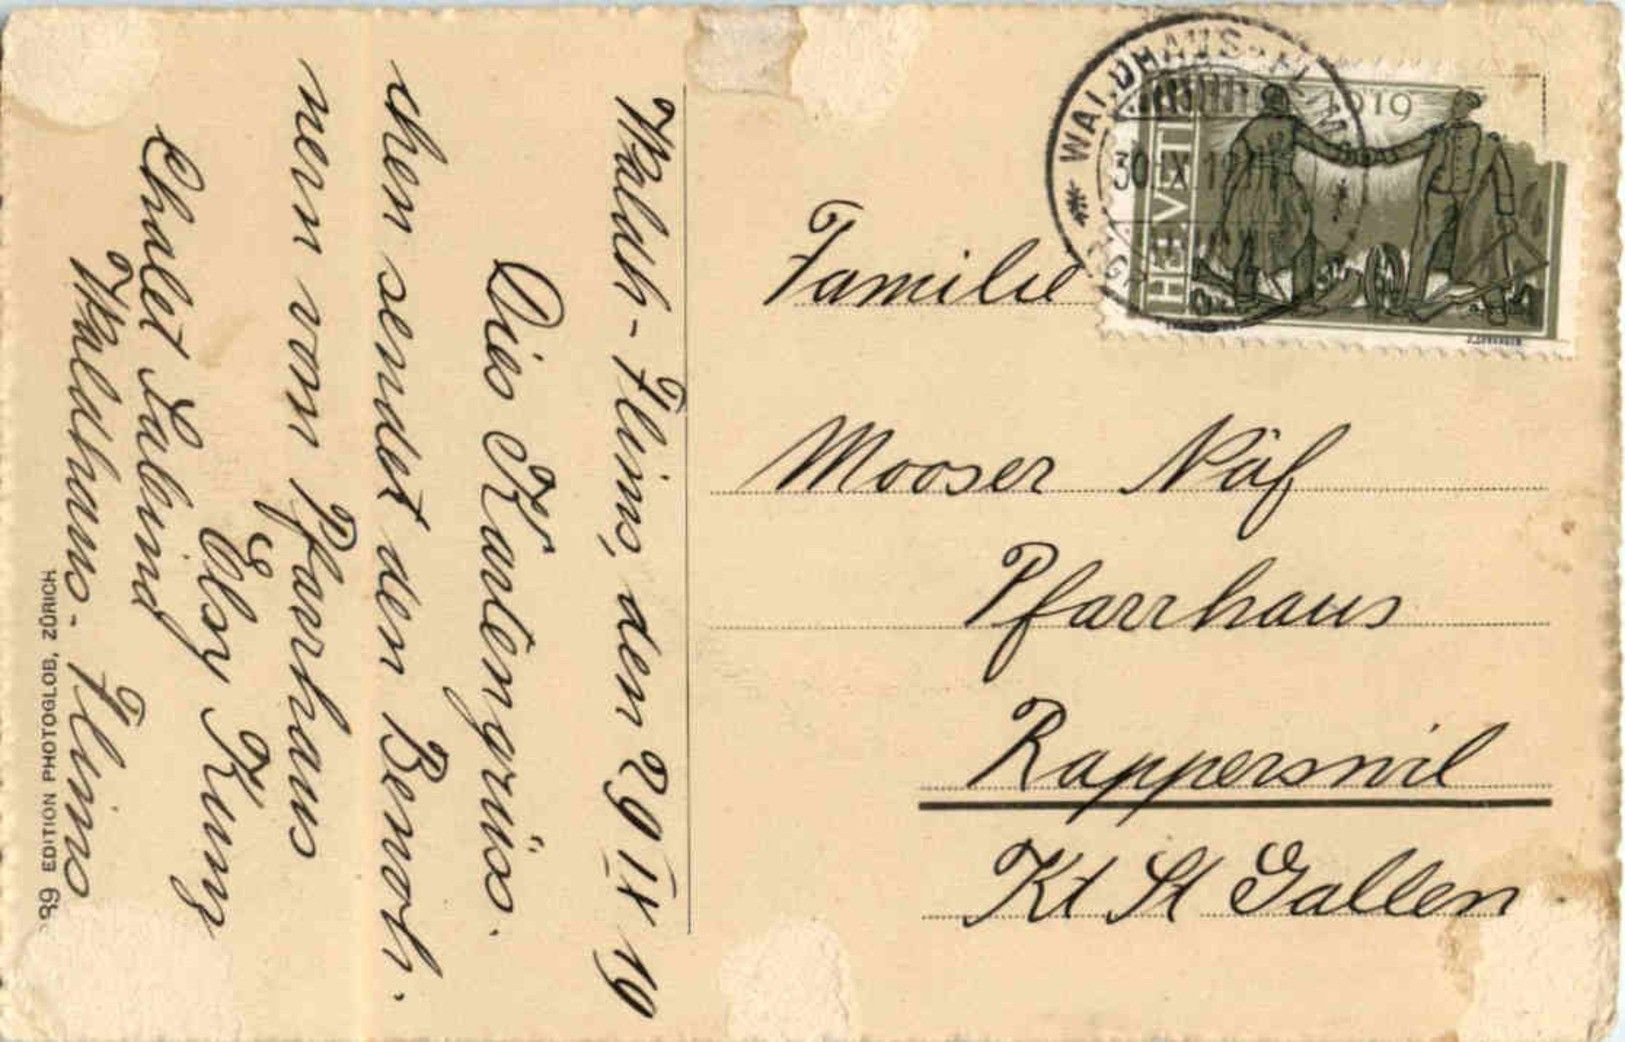 Waldh-Flims, den 29 IX 19
Dies Kartengrüss.
chen sendet den Bewoh.
nern vom Pfarrhaus
Elsy Kunz
Chalet Sabina
Waldhaus-Flims
89 EDITION PHOTOGLOB, ZÜRICH
WALDHAUS-FLIMS
30.IX.19
HELVETIA
1919
Familie
Mooser Näf
Pfarrhaus
Rapperswil
Kt St Gallen